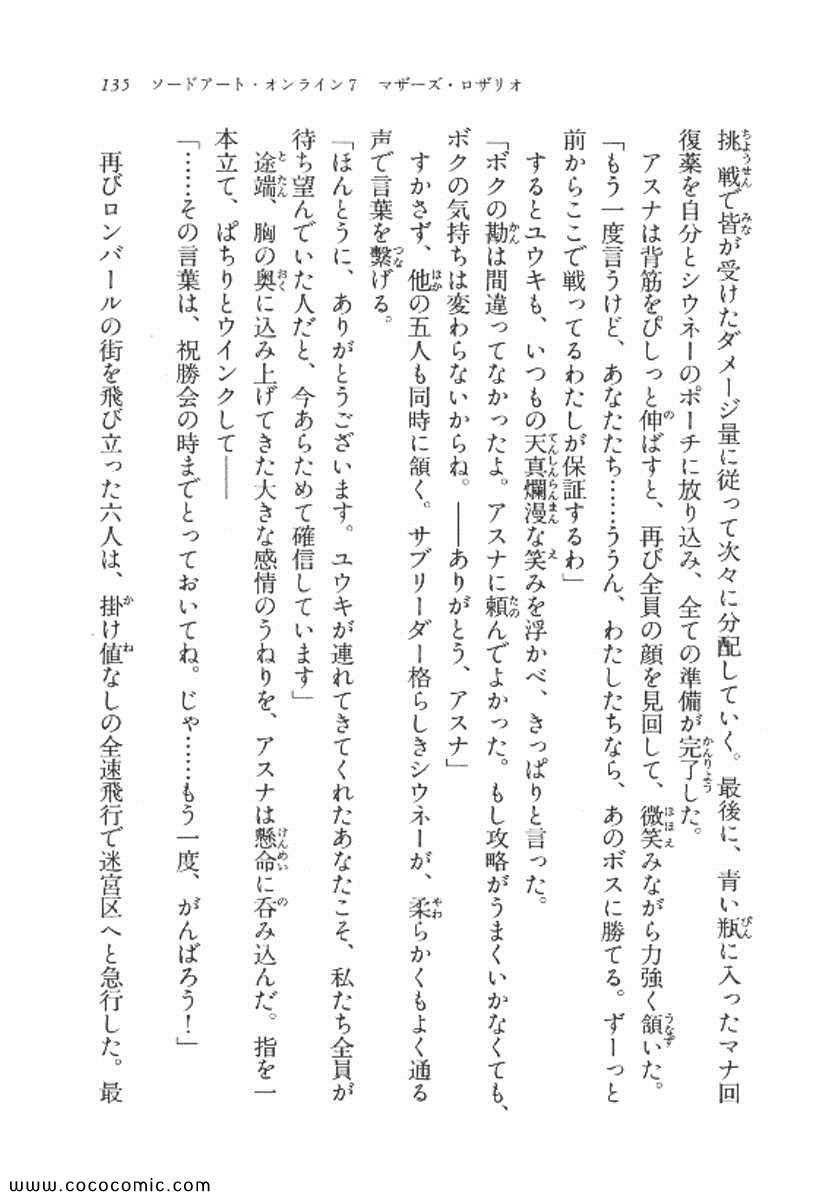 135 ソードアート・オンライン7 マザーズ・ロザリオ
挑戦で皆が受けたダメージ量に従って次々に分配していく。最後に、青い瓶に入ったマナ回
復薬を自分とシウネーのポーチに放り込み、全ての準備が完了した。
アスナは背筋をぴしっと伸ばすと、再び全員の顔を見回して、微笑みながら力強く頷いた。
「もう一度言うけど、あなたたち……ううん、わたしたちなら、あのボスに勝てる。ずーっと
前からここで戦ってるわたしが保証するわ」
するとユウキも、いつもの天真爛漫な笑みを浮かべ、きっぱりと言った。
「ボクの勘は間違ってなかったよ。アスナに頼んでよかった。もし攻略がうまくいかなくても、
ボクの気持ちは変わらないからね。――ありがとう、アスナ」
すかさず、他の五人も同時に頷く。サブリーダー格らしきシウネーが、柔らかくもよく通る
声で言葉を繫げる。
「ほんとうに、ありがとうございます。ユウキが連れてきてくれたあなたこそ、私たち全員が
待ち望んでいた人だと、今あらためて確信しています」
途端、胸の奥に込み上げてきた大きな感情のうねりを、アスナは懸命に呑み込んだ。指を一
本立て、ぱちりとウインクして――
「……その言葉は、祝勝会の時までとっておいてね。じゃ……もう一度、がんばろう！」
再びロンバールの街を飛び立った六人は、掛け値なしの全速飛行で迷宮区へと急行した。最
www.cococomic.com/